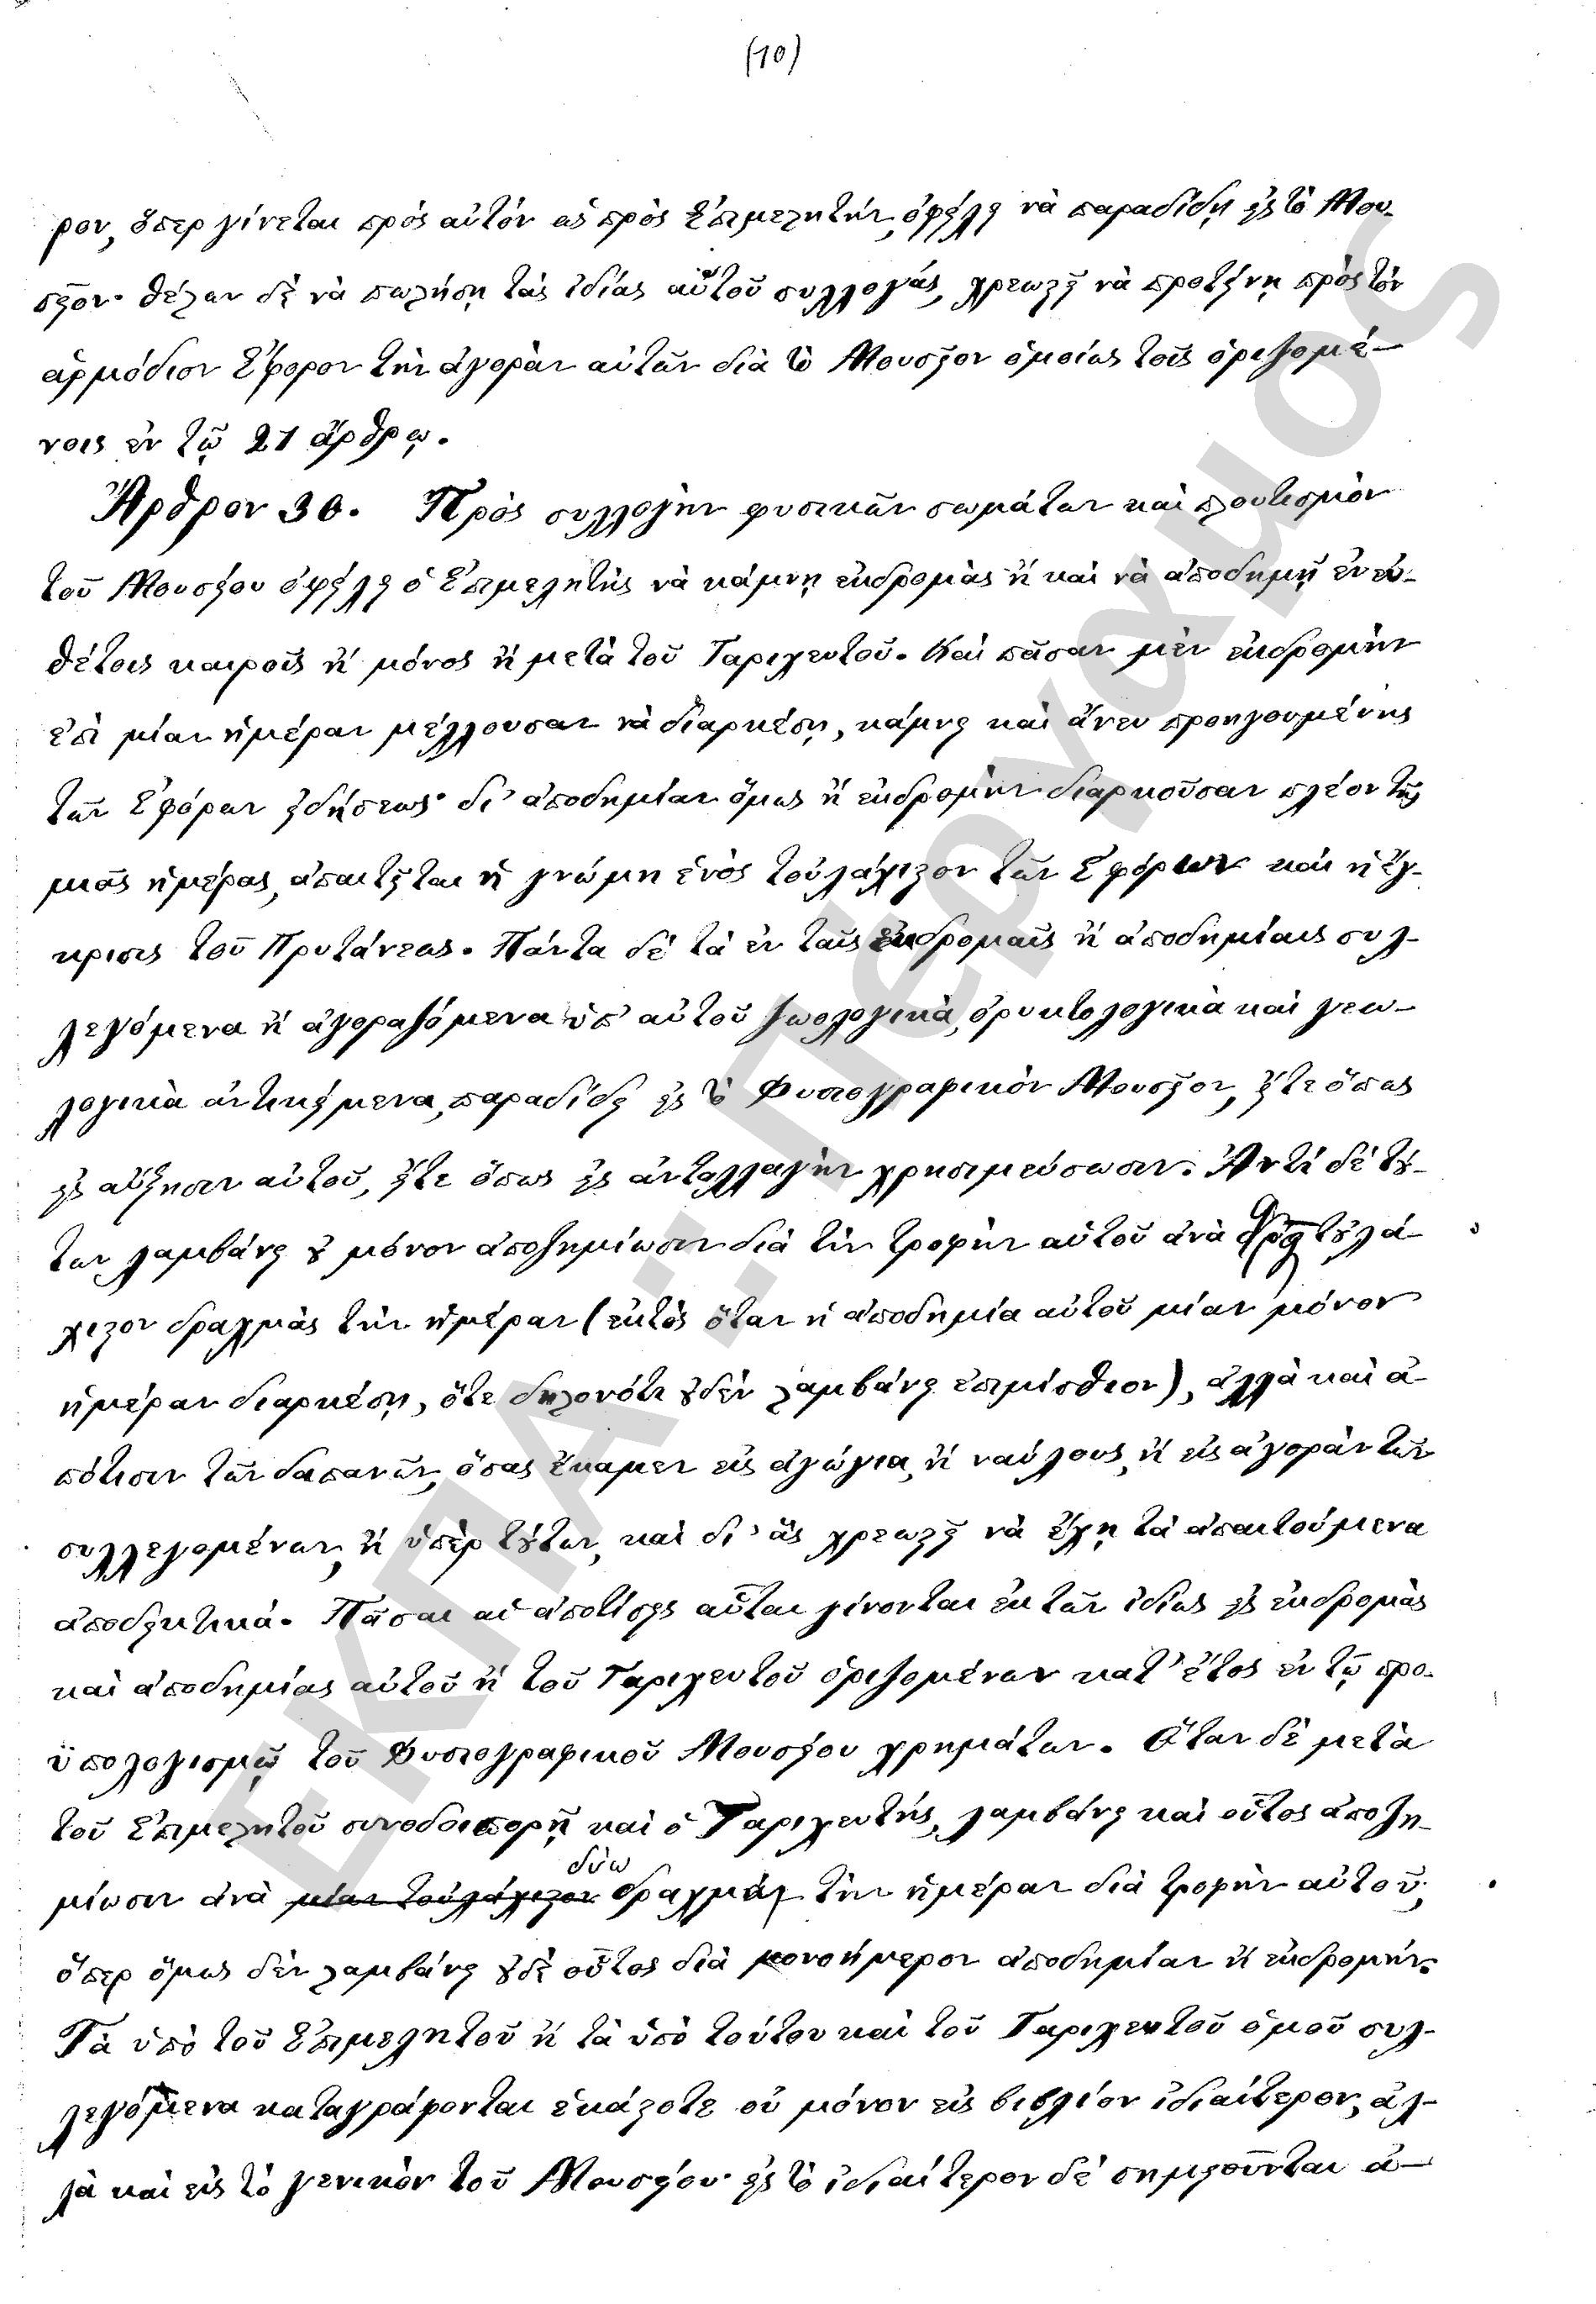 (10)
ρον, ὅπερ γίνεται πρὸς αὐτὸν ὡς πρὸς Ἐπιμελητήν, ὀφείλει νὰ παραδίδῃ εἰς τὸ Μου-
σεῖον· θέλων δὲ νὰ πωλήσῃ τὰς ἰδίας αὑτοῦ συλλογάς, χρεωστεῖ νὰ προτείνῃ πρὸς τὸν
ἁρμόδιον Ἔφορον τὴν ἀγορὰν αὐτῶν διὰ τὸ Μουσεῖον ὁμοίως τοῖς ὁριζομέ-
νοις ἐν τῷ 21 ἄρθρῳ.
Ἄρθρον 30. Πρὸς συλλογὴν φυσικῶν σωμάτων καὶ πλουτισμὸν
τοῦ Μουσείου ὀφείλει ὁ Ἐπιμελητὴς νὰ κάμνῃ ἐκδρομὰς ἢ καὶ νὰ ἀποδημῇ ἐν εὐ-
θέτοις καιροῖς ἢ μόνος ἢ μετὰ τοῦ Ταριχευτοῦ. Καὶ πᾶσαν μὲν ἐκδρομὴν
ἐπὶ μίαν ἡμέραν μέλλουσαν νὰ διαρκέσῃ, κάμνει καὶ ἄνευ προηγουμένης
τῶν Ἐφόρων εἰδήσεως· δι' ἀποδημίαν ὅμως ἢ ἐκδρομὴν διαρκοῦσαν πλέον τῆς
μιᾶς ἡμέρας, ἀπαιτεῖται ἡ γνώμη ἑνὸς τοὐλάχιστον τῶν Ἐφόρων καὶ ἡ ἔγ-
κρισις τοῦ Πρυτάνεως. Πάντα δὲ τὰ ἐν ταῖς ἐκδρομαῖς ἢ ἀποδημίαις συλ-
λεγόμενα ἢ ἀγοραζόμενα ὑπ' αὐτοῦ ζωολογικά, ὀρυκτολογικὰ καὶ γεω-
λογικὰ ἀντικείμενα, παραδίδει εἰς τὸ Φυσιογραφικὸν Μουσεῖον, εἴτε ὅπως
εἰς αὔξησιν αὐτοῦ, εἴτε ὅπως εἰς ἀνταλλαγὴν χρησιμεύσωσιν. Ἀντὶ δὲ τού-
των λαμβάνει οὐ μόνον ἀποζημίωσιν διὰ τὴν τροφὴν αὐτοῦ ἀνὰ τοὐλά-
χιστον δραχμὰς τὴν ἡμέραν (ἐκτὸς ὅταν ἡ ἀποδημία αὐτοῦ μίαν μόνον
ἡμέραν διαρκέσῃ, ὅτε δηλονότι οὐδὲν λαμβάνει ἐπιμίσθιον), ἀλλὰ καὶ ἀ-
πότισιν τῶν δαπανῶν, ὅσας ἔκαμεν εἰς ἀγώγια, ἢ ναύλους, ἢ εἰς ἀγορὰν τῶν
συλλεγομένων, ἢ ὑπὲρ τούτων, καὶ δι' ἃς χρεωστεῖ νὰ ἔχῃ τὰ ἀπαιτούμενα
ἀποδεικτικά. Πᾶσαι αἱ ἀποτίσεις αὗται γίνονται ἐκ τῶν ἰδίως εἰς ἐκδρομὰς
καὶ ἀποδημίας αὐτοῦ ἢ τοῦ Ταριχευτοῦ ὁριζομένων κατ' ἔτος ἐν τῷ προ-
ϋπολογισμῷ τοῦ Φυσιογραφικοῦ Μουσείου χρημάτων. Ὅταν δὲ μετὰ
τοῦ Ἐπιμελητοῦ συνοδοιπορῇ καὶ ὁ Ταριχευτής, λαμβάνει καὶ οὗτος ἀποζη-
δύω
μίωσιν ἀνὰ μίαν τοὐλάχιστον δραχμὰς τὴν ἡμέραν διὰ τροφὴν αὑτοῦ,
ὅπερ ὅμως δὲν λαμβάνει οὐδὲ οὗτος διὰ μονοήμερον ἀποδημίαν ἢ ἐκδρομήν.
Τὰ ὑπὸ τοῦ Ἐπιμελητοῦ ἢ τὰ ὑπὸ τούτου καὶ τοῦ Ταριχευτοῦ ὁμοῦ συλ-
λεγόμενα καταγράφονται ἑκάστοτε οὐ μόνον εἰς βιβλίον ἰδιαίτερον, ἀλ-
λὰ καὶ εἰς τὸ γενικὸν τοῦ Μουσείου· εἰς τὸ ἰδιαίτερον δὲ σημειοῦνται ἀ-
ΕΚΠΑ: Περγαμος